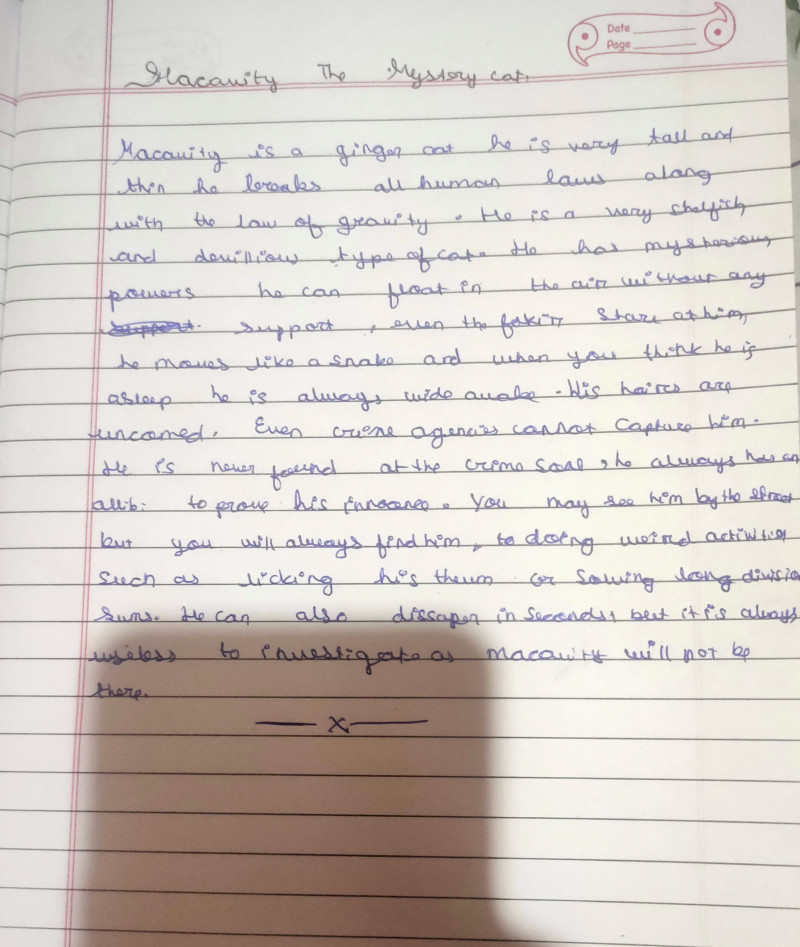 Date
Page
Macavity The Mystery cat.
Macavity is a ginger cat he is very tall and
thin he breaks all human laws along
with the law of gravity. He is a very shelfish
and devillious type of cat. He has mysterious
powers he can float in the air without any
support , even the fakir stare at him,
he moves like a snake and when you think he is
asleep he is always wide awake. His haires are
uncomed. Even crime agencies cannot capture him.
He is never found at the crime , he always has an
allibi to prove his innocence. You may see him by the street
but you will always find him, to doing weird activities
such as licking his thum or solving long division
sums. He can also dissaper in seconds, but it is always
useless to investigate as macavity will not be
there.
—— x ——